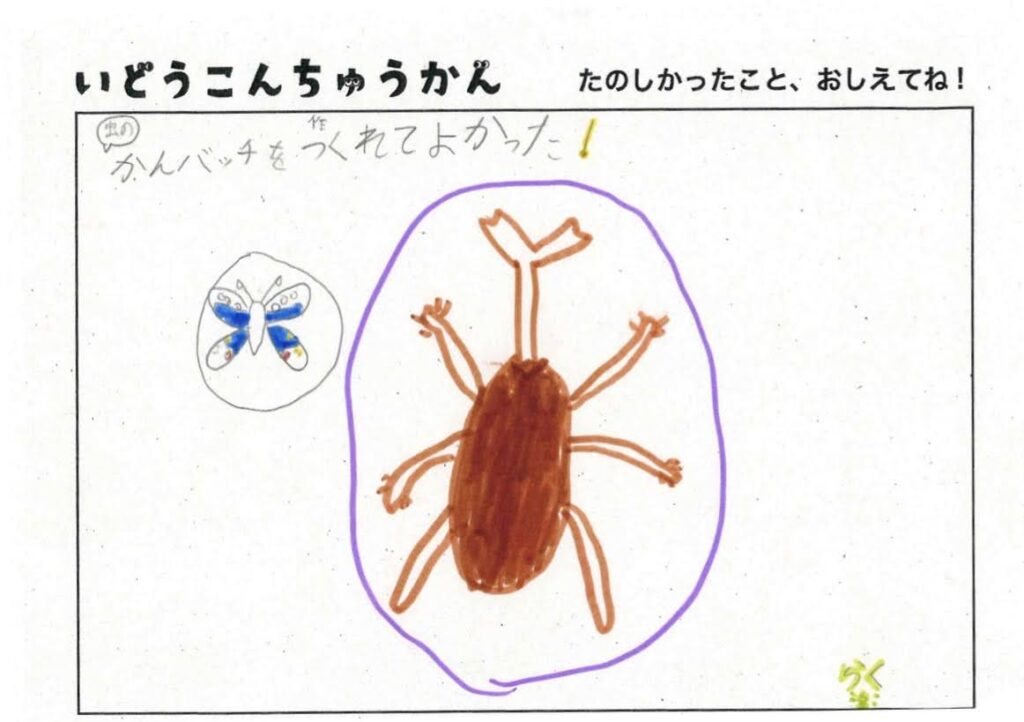 いどうこんちゅうかん
たのしかったこと、おしえてね!
虫の
作
かんバッチをつくれてよかった!
らく